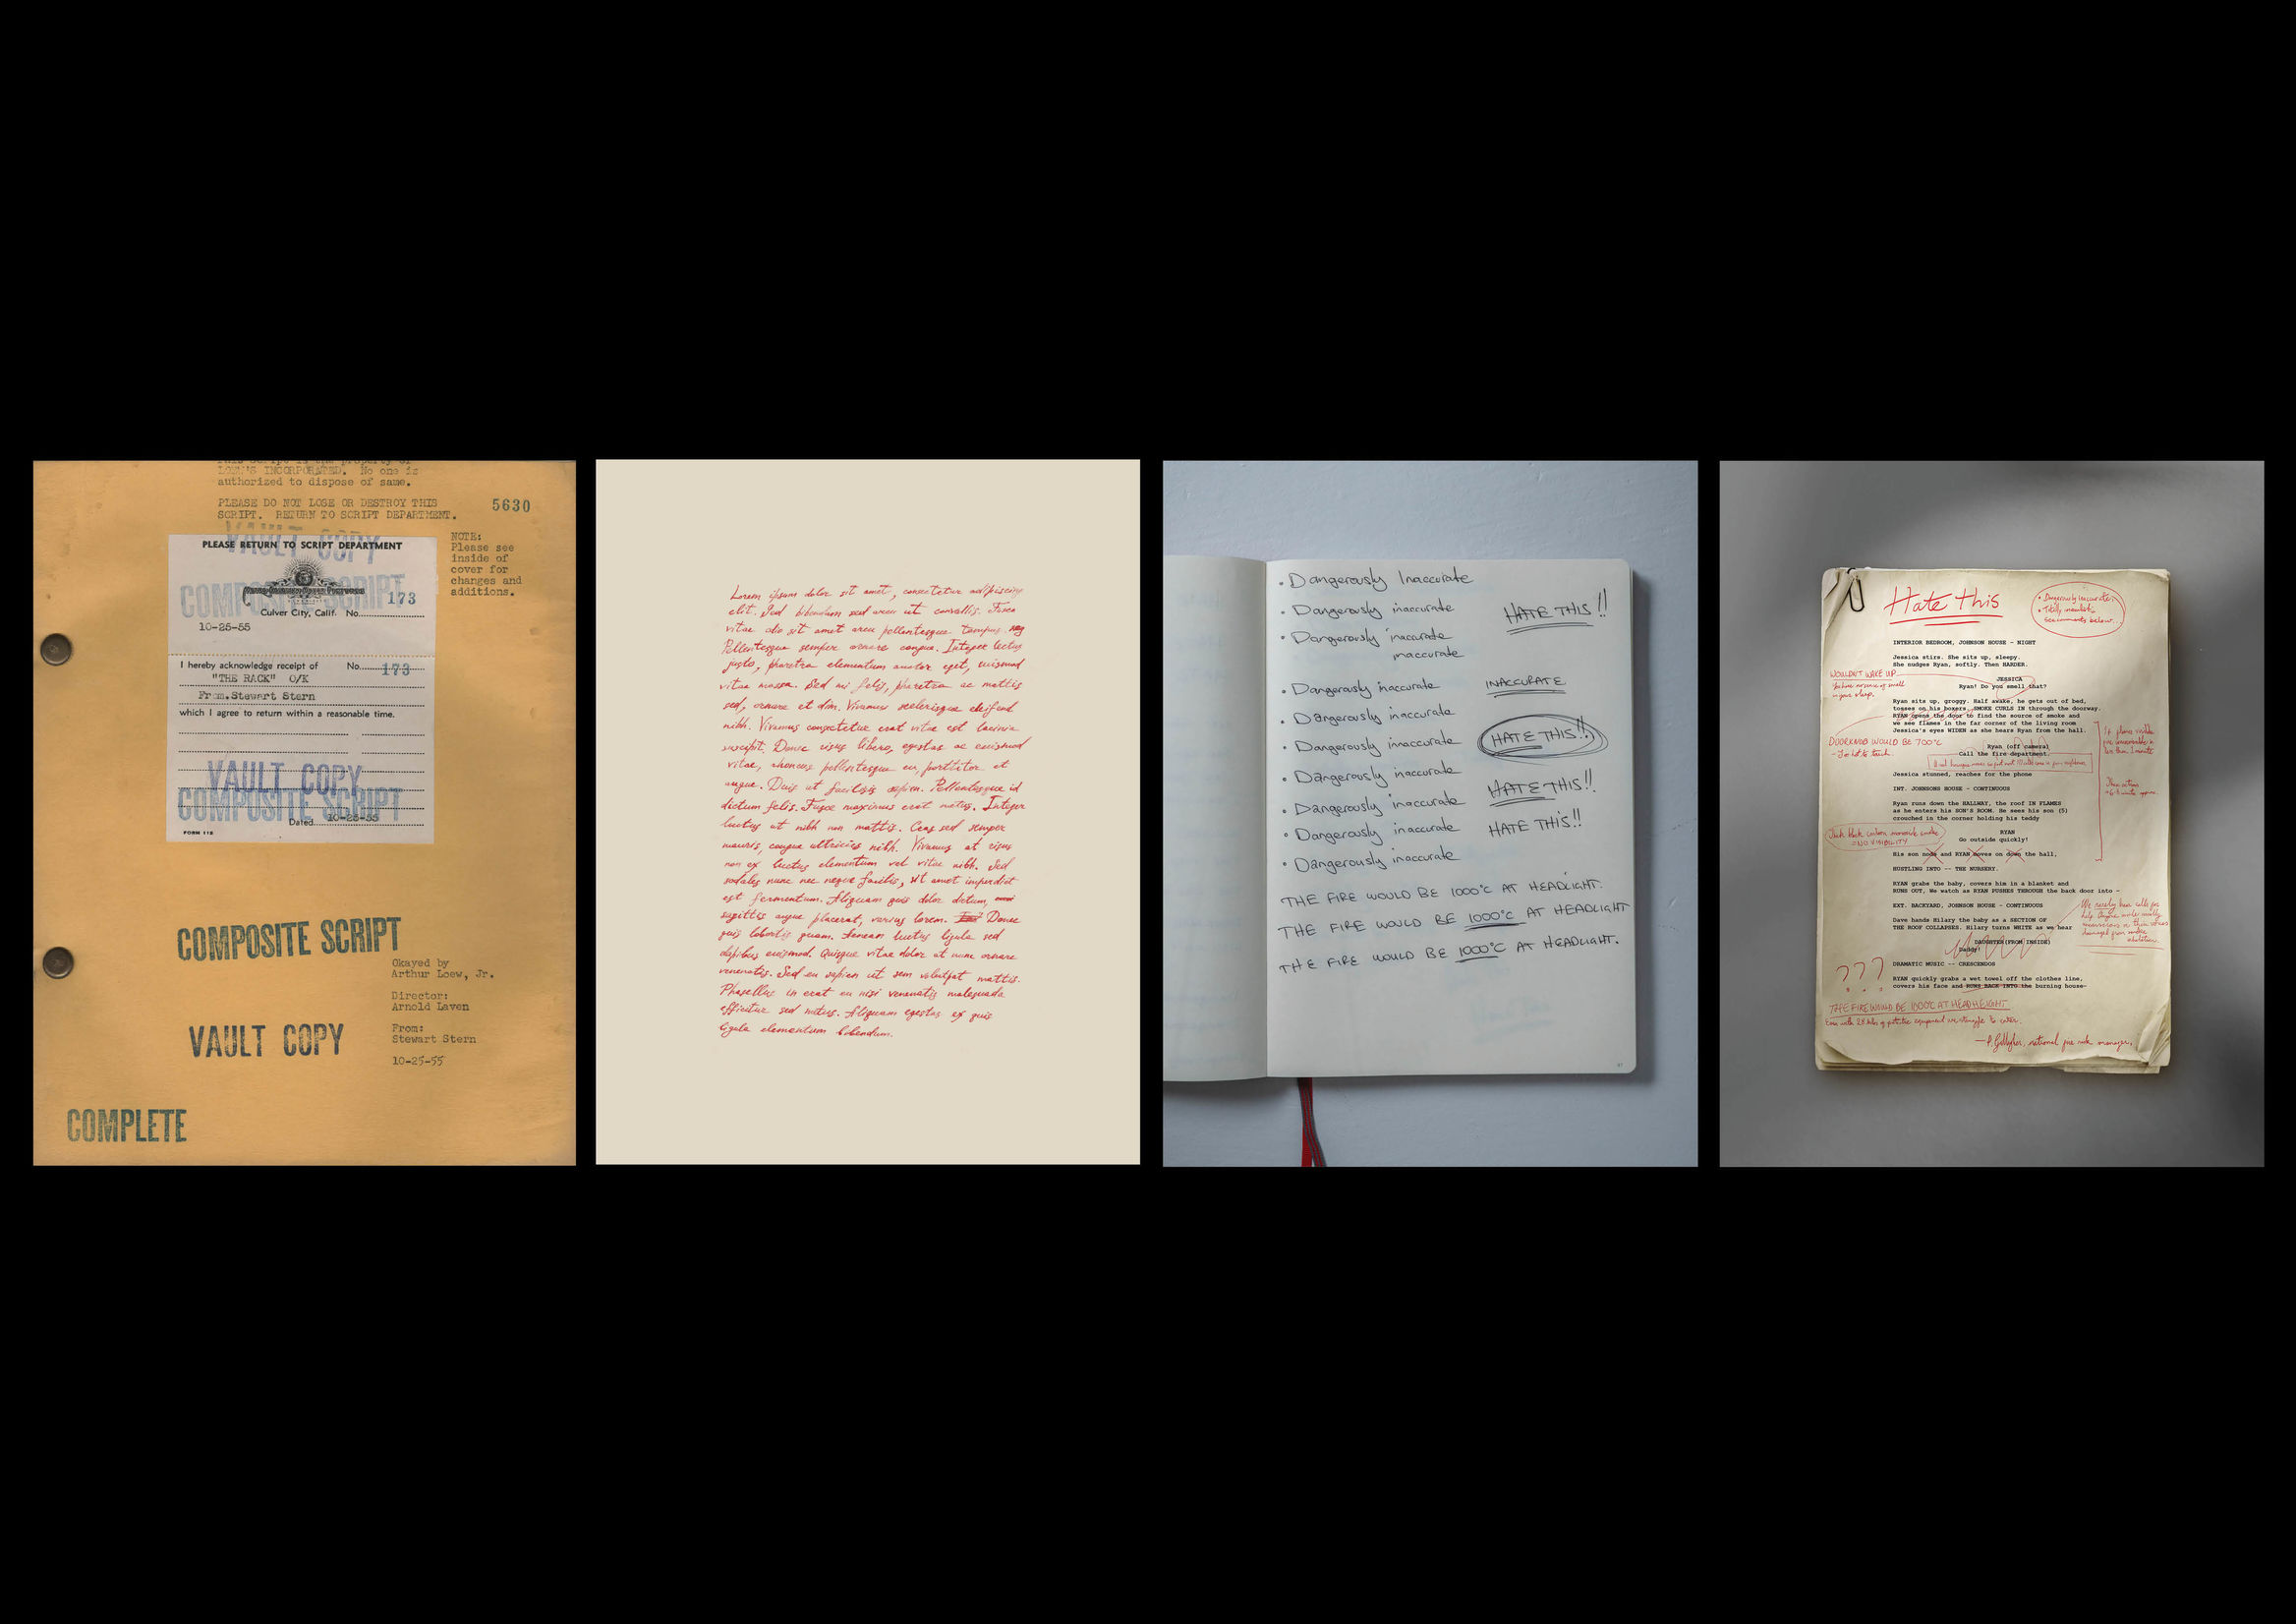 LOEW'S INCORPORATED. No one is
authorized to dispose of same.
PLEASE DO NOT LOSE OR DESTROY THIS
SCRIPT. RETURN TO SCRIPT DEPARTMENT.
5630
VAULT COPY
NOTE:
Please see
inside of
cover for
changes and
additions.
PLEASE RETURN TO SCRIPT DEPARTMENT
COMPOSITE SCRIPT
173
Culver City, Calif. No.
10-25-55
I hereby acknowledge receipt of No. 173
"THE RACK" O/K
From. Stewart Stern
which I agree to return within a reasonable time.
VAULT COPY
COMPOSITE SCRIPT
Dated 10-25-55
FORM 115
COMPOSITE SCRIPT
Okayed by
Arthur Loew, Jr.
Director:
Arnold Laven
VAULT COPY
From:
Stewart Stern
10-25-55
COMPLETE
Lorem ipsum dolor sit amet, consectetur adipiscing
elit. Sed bibendum sed arcu ut convallis. Fusce
vitae odio sit amet arcu pellentesque tempus.
Pellentesque semper ornare congue. Integer lectus
justo, pharetra elementum auctor eget, euismod
vitae massa. Sed mi felis, pharetra ac mattis
sed, ornare et dim. Vivamus scelerisque eleifend
nibh. Vivamus consectetur erat vitae est lacinia
suscipit. Donec risus libero, egestas ac euismod
vitae, rhoncus pellentesque eu, porttitor et
augue. Duis ut facilisis sapien. Pellentesque id
dictum felis. Fusce maximus erat metus. Integer
luctus at nibh non mattis. Cras sed semper
mauris, congue ultricies nibh. Vivamus at risus
non ex luctus elementum vel vitae nibh. Sed
sodales nunc nec neque facilis, ut amet imperdiet
est fermentum. Aliquam quis dolor dictum,
sagittis augue placerat, varius lorem. Donec
quis lobortis quam. Aenean luctus ligula sed
dapibus euismod. Quisque vitae dolor at nunc ornare
venenatis. Sed eu sapien ut sem volutpat mattis.
Phasellus in erat eu nisi venenatis malesuada
efficitur sed metus. Aliquam egestas ex quis
ligula elementum bibendum.
• Dangerously Inaccurate
• Dangerously inaccurate HATE THIS!!
• Dangerously inaccurate
inaccurate
• Dangerously inaccurate INACCURATE
• Dangerously inaccurate
• Dangerously inaccurate HATE THIS!!
• Dangerously inaccurate
• Dangerously inaccurate HATE THIS!!
• Dangerously inaccurate HATE THIS!!
• Dangerously inaccurate
THE FIRE WOULD BE 1000°C AT HEADLIGHT.
THE FIRE WOULD BE 1000°C AT HEADLIGHT
THE FIRE WOULD BE 1000°C AT HEADLIGHT.
Hate This
• Dangerously inaccurate.
• Totally
See comments below...
INTERIOR BEDROOM, JOHNSON HOUSE - NIGHT
Jessica stirs. She sits up, sleepy.
She nudges Ryan, softly. Then HARDER.
WOULDN'T WAKE UP
You have no sense of smell
in your sleep.
JESSICA
Ryan! Do you smell that?
Ryan sits up, groggy. Half awake, he gets out of bed,
tosses on his boxers, SMOKE CURLS IN through the doorway.
RYAN opens the door to find the source of smoke and
we see flames in the far corner of the living room
Jessica's eyes WIDEN as she hears Ryan from the hall.
DOORKNOB WOULD BE 700°C
- Too hot to touch.
Ryan (off camera)
Call the fire department.
Jessica stunned, reaches for the phone
INT. JOHNSONS HOUSE - CONTINUOUS
Ryan runs down the HALLWAY, the roof IN FLAMES
as he enters his SON'S ROOM. He sees his son (5)
crouched in the corner holding his teddy
Thick black carbon monoxide smoke
= NO VISIBILITY
RYAN
Go outside quickly!
His son nods and RYAN moves on down the hall,
HUSTLING INTO -- THE NURSERY.
RYAN grabs the baby, covers him in a blanket and
RUNS OUT, We watch as RYAN PUSHES THROUGH the back door into -
EXT. BACKYARD, JOHNSON HOUSE - CONTINUOUS
Dave hands Hilary the baby as a SECTION OF
THE ROOF COLLAPSES. Hilary turns WHITE as we hear
DAUGHTER (FROM INSIDE)
Daddy!
DRAMATIC MUSIC -- CRESCENDOS
???
RYAN quickly grabs a wet towel off the clothes line,
covers his face and RUNS BACK INTO the burning house-
THE FIRE WOULD BE 1000°C AT HEADHEIGHT
Even with 28 kilos of protective equipment we struggle to enter.
national fire risk manager.